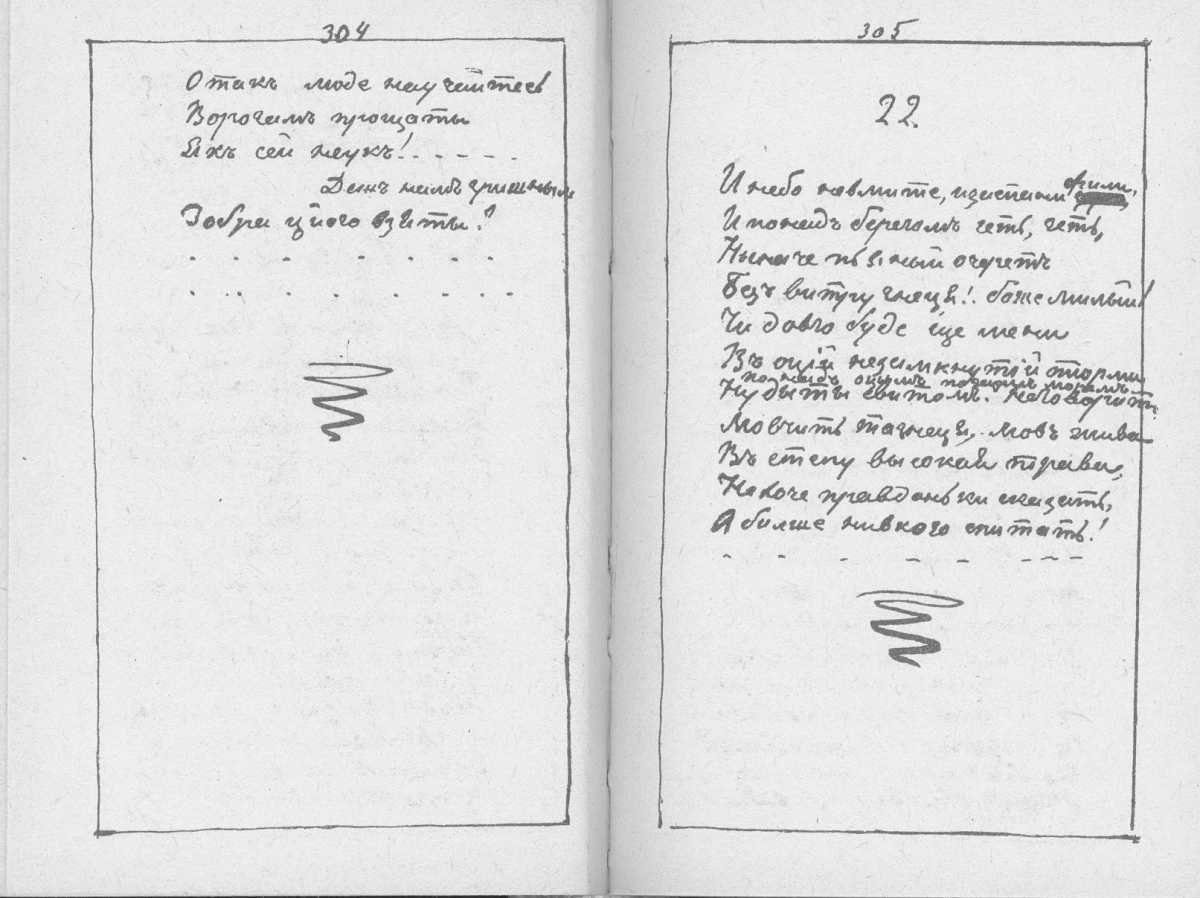 304
Отакъ люде научайтесь
Ворогамъ прощаты
Якъ сей неукъ!
Дежъ намъ гришнымъ
Добра цього взяты?
305
22.
И небо невмите, и заспани хвили,
И понадъ берегомъ геть, геть,
Ныначе пьяный очеретъ
Безъ витру гнеця! боже милый!
Чи довго буде ще мени
Въ оцій незамкнутій тюрми
понадъ оцимъ никчемнымъ моремъ
Нудыты свитомъ. Неговорить,
Мовчить гнеця, мовъ жива
Въ степу высокая трава,
Нехоче правдоньки сказать,
А билше нивкого спитать!